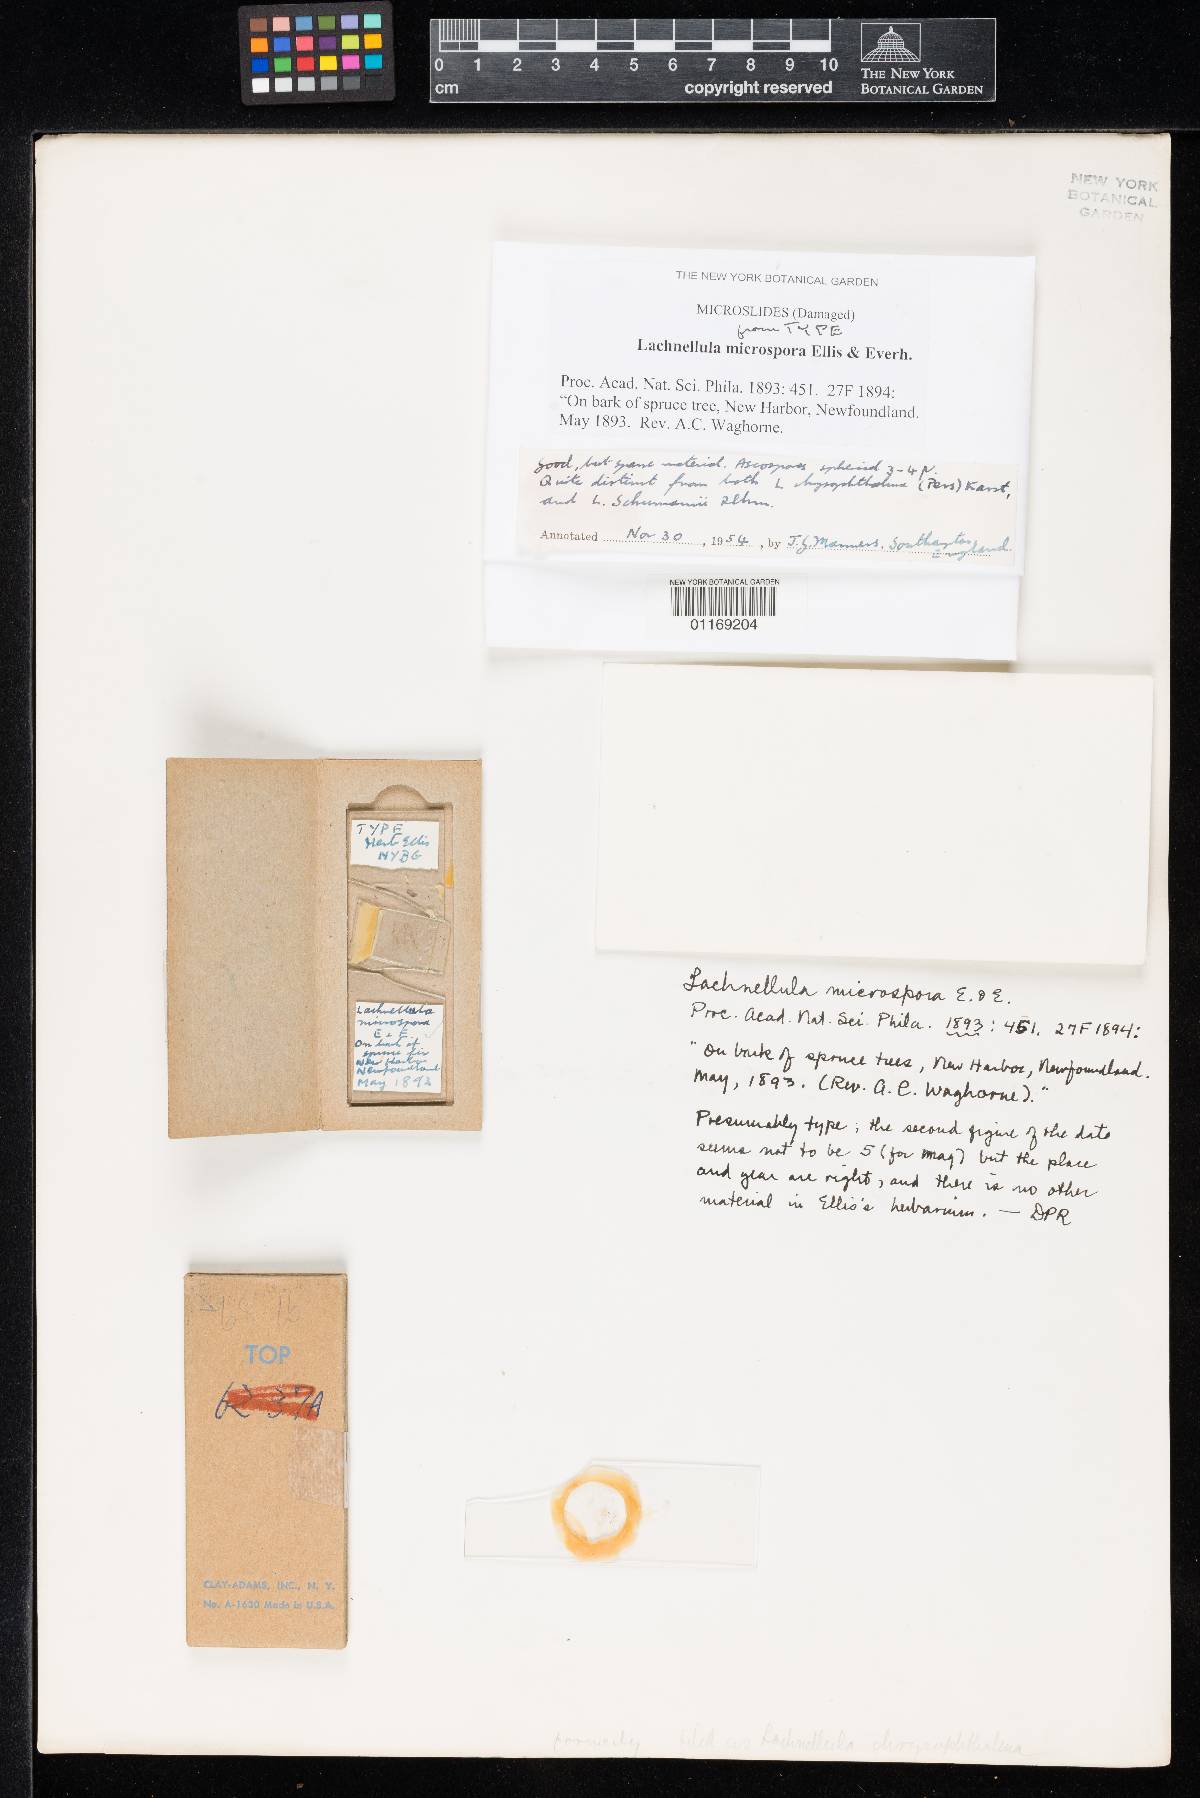 0 1 2 3 4 5 6 7 8 9 10
cm copyright reserved
THE NEW YORK
BOTANICAL GARDEN
NEW YORK
BOTANICAL
GARDEN
THE NEW YORK BOTANICAL GARDEN
MICROSLIDES (Damaged)
from TYPE
Lachnellula microspora Ellis & Everh.
Proc. Acad. Nat. Sci. Phila. 1893: 451. 27F 1894:
“On bark of spruce tree, New Harbor, Newfoundland.
May 1893. Rev. A.C. Waghorne.
Good, but sparse material. Ascospores spheroid 3-4 μ.
Quite distinct from both L chrysophthalma (Pers) Karst,
and L. Schumannii Rehm.
Annotated Nov 30, 1954, by J.G. Manners, Southampton
England
NEW YORK BOTANICAL GARDEN
01169204
TYPE
Herb Ellis
NYBG
Lachnellula
microspora
E & E.
On bark of
spruce fir
New Harbor
Newfoundland
May 1893
Lachnellula microspora E. & E.
Proc. Acad. Nat. Sci. Phila. 1893: 451. 27F1894:
"On bark of spruce trees, New Harbor, Newfoundland.
May, 1893. (Rev. A. C. Waghorne)."
Presumably type; the second figure of the date
seems not to be 5 (for May) but the place
and year are right, and there is no other
material in Ellis's herbarium. — DPR
TOP
CLAY-ADAMS, INC., N. Y.
No. A-1630 Made in U.S.A.
formerly filed as Lachnellula chrysophthalma